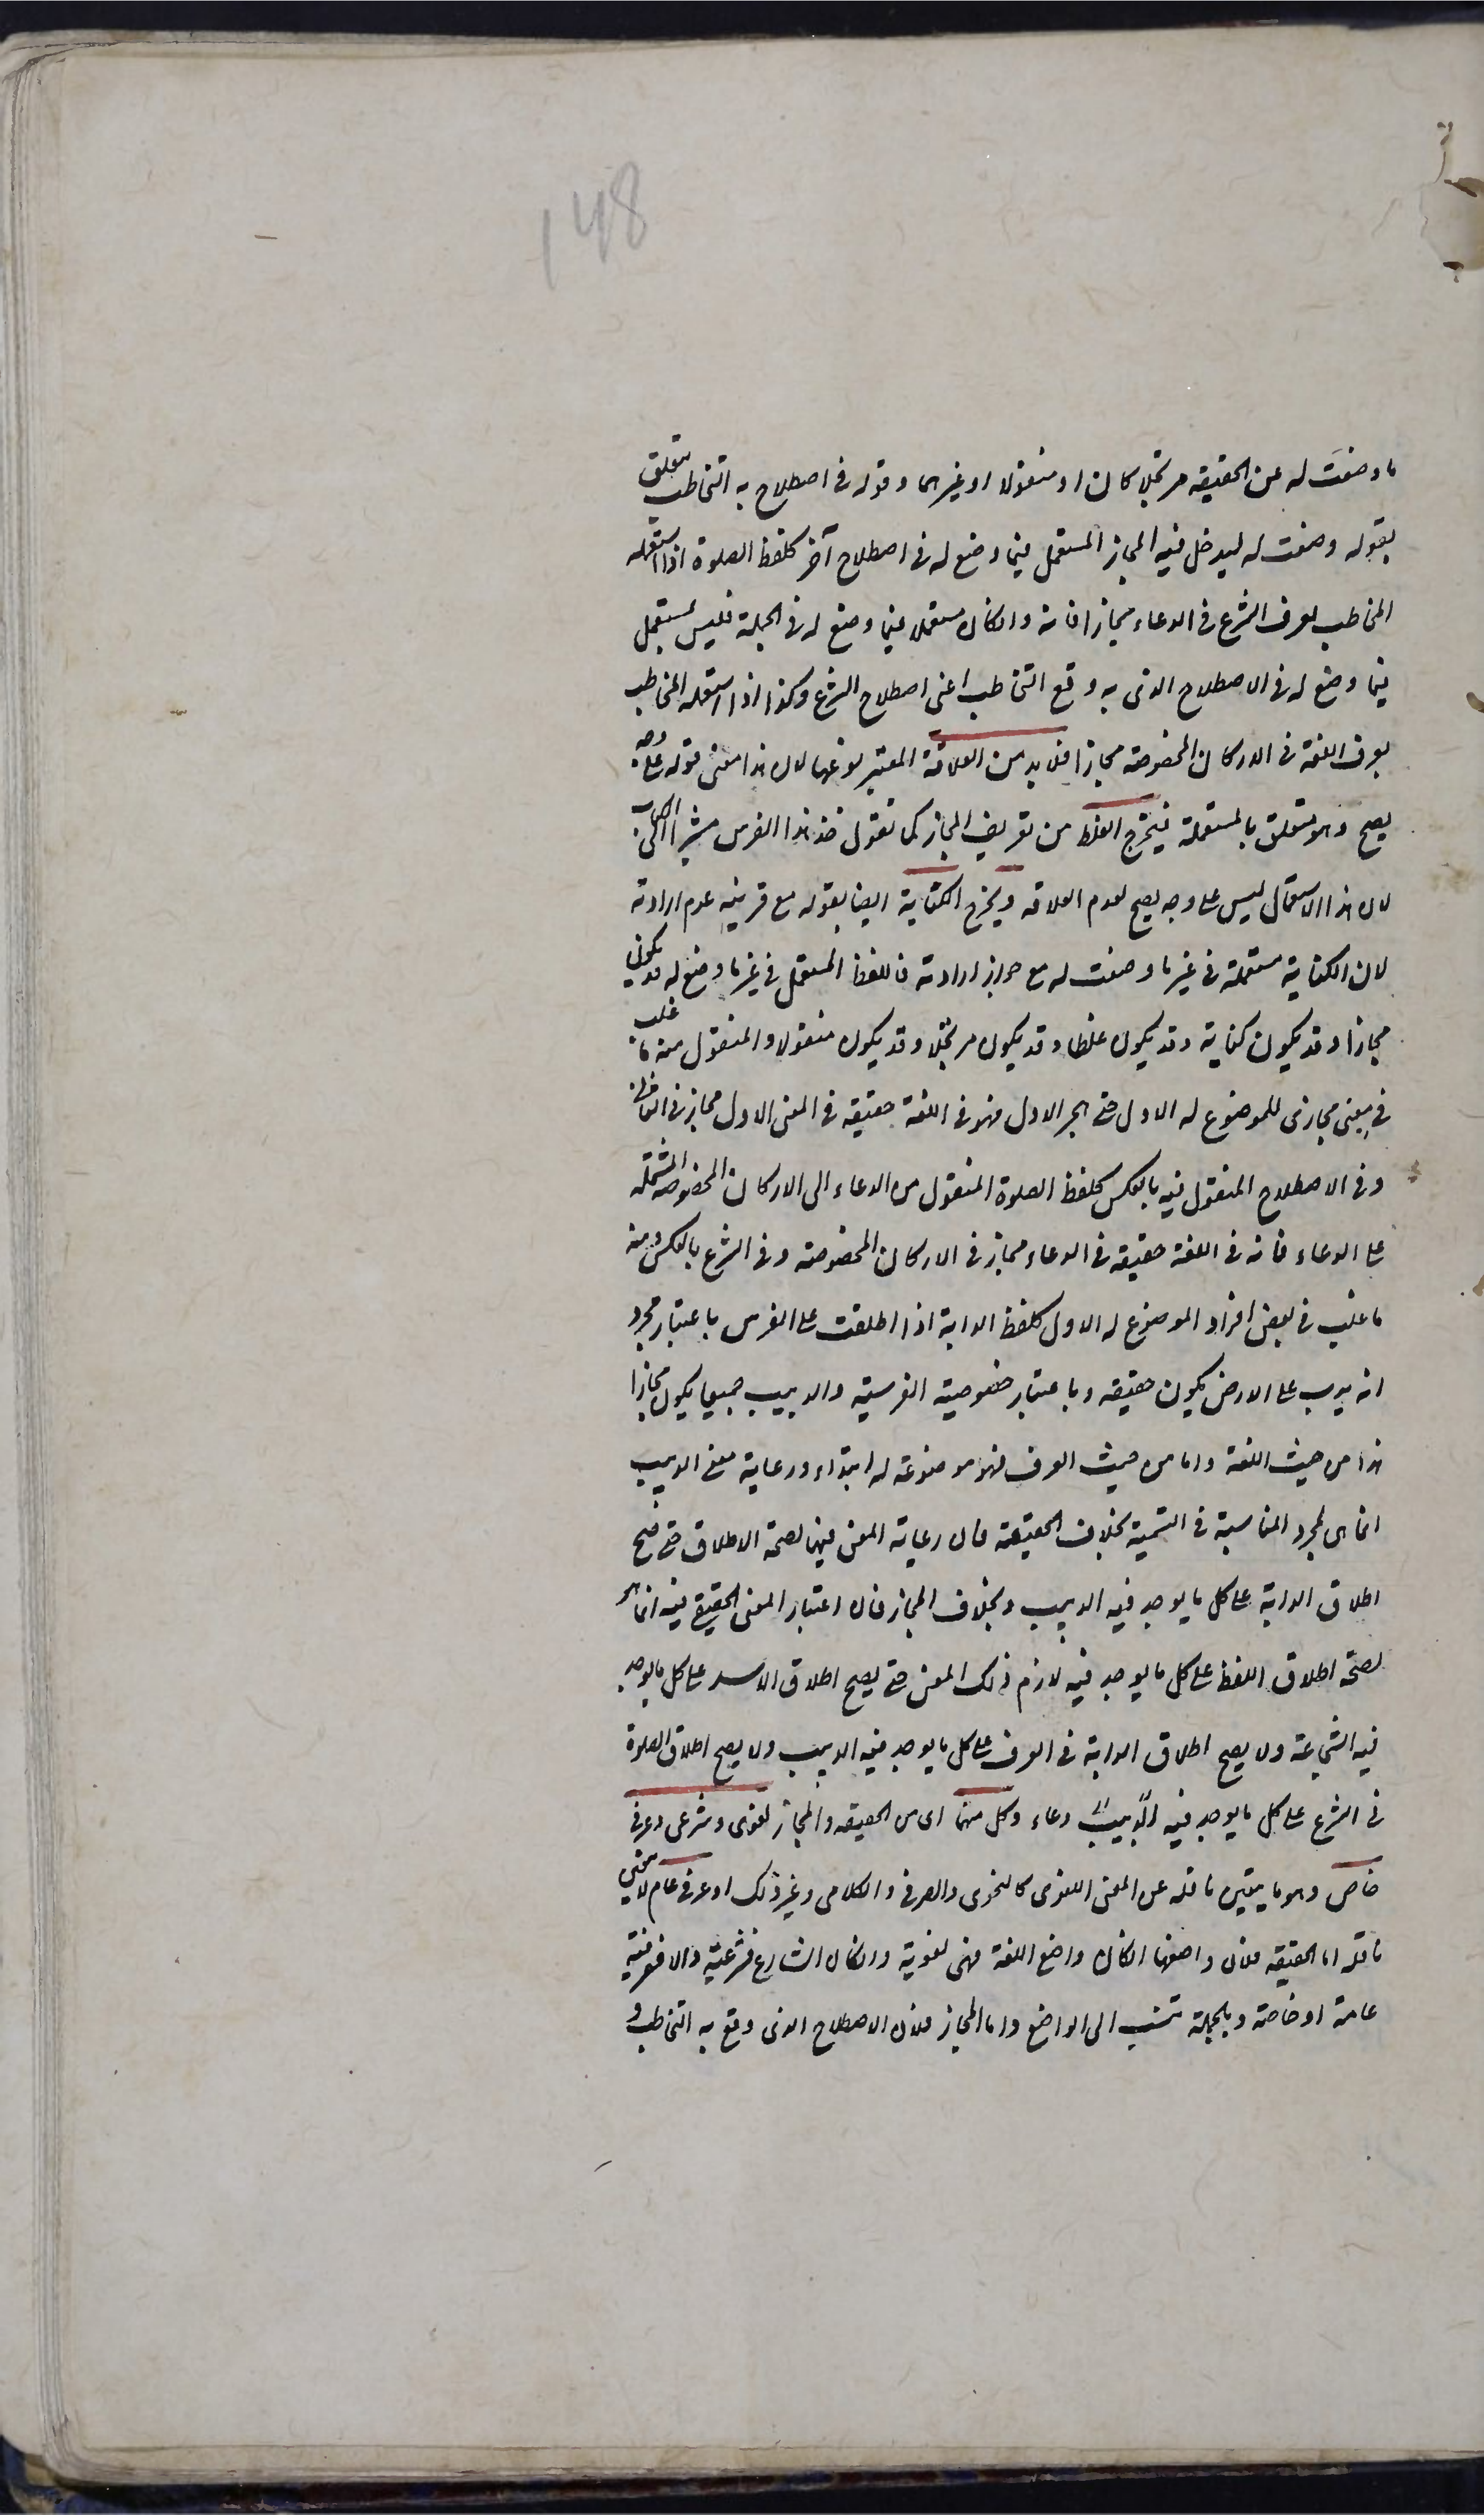 148
ما وضعت له عن الحقيقة مرتجلا كان او منقولا او غيرهما وقوله فى اصطلاح به التخاطب متعلق
بقوله وضعت له ليدخل فيه المجاز المستعمل فيما وضع له فى اصطلاح آخر كلفظ الصلوة اذا استعمله
المخاطب بعرف الشرع فى الدعاء مجازا فانه وان كان مستعملا فيما وضع له فى الجملة فليس بمستعمل
فيما وضع له فى الاصطلاح الذى به وقع التخاطب اعنى اصطلاح الشرع وكذا اذا استعمله المخاطب
بعرف اللغة فى الاركان المخصوصة مجازا فلا بد من العلاقة المعتبر نوعها لان هذا معنى قوله على وجه
يصح وهو متعلق بالمستعملة فيخرج الغلط من تعريف المجاز كما تقول خذ هذا الفرس مشيرا الى كتاب
لان هذا الاستعمال ليس على وجه يصح لعدم العلاقة ويخرج الكناية ايضا بقوله مع قرينة عدم ارادته
لان الكناية مستعملة فى غير ما وضعت له مع جواز ارادته فاللفظ المستعمل فى غير ما وضع له قد يكون
مجازا وقد يكون كناية وقد يكون غلطا وقد يكون مرتجلا وقد يكون منقولا والمنقول منه ما غلب
فى معنى مجازى للموضوع له الاول حتى هجر الاول فهو فى اللغة حقيقة فى المعنى الاول مجاز فى الثانى
وفى الاصطلاح المنقول فيه بالعكس كلفظ الصلوة المنقول من الدعاء الى الاركان المخصوصة المشتملة
على الدعاء فانه فى اللغة حقيقة فى الدعاء مجاز فى الاركان المخصوصة وفى الشرع بالعكس ومنه
ما غلب فى بعض افراد الموضوع له الاول كلفظ الدابة اذا اطلقت على الفرس باعتبار مجرد
انه يدب على الارض يكون حقيقة وباعتبار خصوصية الفرسية والدبيب جميعا يكون مجازا
هذا من حيث اللغة واما من حيث العرف فهو موضوعة له ابتداء ورعاية معنى الدبيب
انما هى لمجرد المناسبة فى التسمية بخلاف الحقيقة فان رعاية المعنى فيها لصحة الاطلاق حتى يصح
اطلاق الدابة على كل ما يوجد فيه الدبيب وبخلاف المجاز فان اعتبار المعنى الحقيقى فيه انما هو
لصحة اطلاق اللفظ على كل ما يوجد فيه لازم ذلك المعنى حتى يصح اطلاق الاسد على كل ما يوجد
فيه الشجاعة ولا يصح اطلاق الدابة فى العرف على كل ما يوجد فيه الدبيب ولا يصح اطلاق الصلوة
فى الشرع على كل ما يوجد فيه الدبيب دعاء وكل منهما اى من الحقيقة والمجاز لغوى وشرعى وعرفى
خاص وهو ما يتعين ناقله عن المعنى اللغوى كالنحوى والصرفى والكلامى وغير ذلك او عرفى عام لا يتعين
ناقله اما الحقيقة فلان واضعها ان كان واضع اللغة فهى لغوية وان كان الشارع فشرعية والا فعرفية
عامة او خاصة وبالجملة تنسب الى الواضع واما المجاز فلان الاصطلاح الذى وقع به التخاطب و